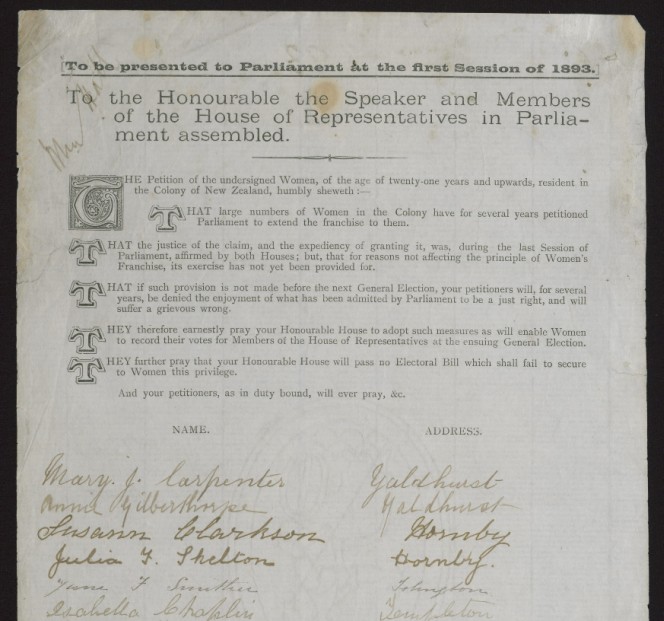 To be presented to Parliament at the first Session of 1893.
To the Honourable the Speaker and Members
of the House of Representatives in Parlia-
ment assembled.
THE Petition of the undersigned Women, of the age of twenty-one years and upwards, resident in
the Colony of New Zealand, humbly sheweth :—
THAT large numbers of Women in the Colony have for several years petitioned
Parliament to extend the franchise to them.
THAT the justice of the claim, and the expediency of granting it, was, during the last Session of
Parliament, affirmed by both Houses; but, that for reasons not affecting the principle of Women's
Franchise, its exercise has not yet been provided for.
THAT if such provision is not made before the next General Election, your petitioners will, for several
years, be denied the enjoyment of what has been admitted by Parliament to be a just right, and will
suffer a grievous wrong.
THEY therefore earnestly pray your Honourable House to adopt such measures as will enable Women
to record their votes for Members of the House of Representatives at the ensuing General Election.
THEY further pray that your Honourable House will pass no Electoral Bill which shall fail to secure
to Women this privilege.
And your petitioners, as in duty bound, will ever pray, &c.
NAME. ADDRESS.
Mary. J. Carpenter Yaldhurst
Annie Gilberthorpe Yaldhurst
Susann Clarkson Hornby
Julia F. Shelton Hornby.
Jane F
Isabella Chaplin Templeton